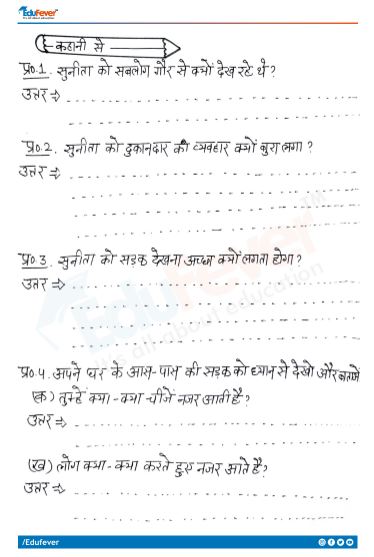 Edufever
It's all about education
कहानी से
प्र०.1. सुनीता को सबलोग गौर से क्यों देख रहे थे?
उत्तर ⇒
प्र०.2. सुनीता को दुकानदार का व्यवहार क्यों बुरा लगा?
उत्तर ⇒
प्र०.3. सुनीता को सड़क देखना अच्छा क्यों लगता होगा?
उत्तर ⇒
प्र०.4. अपने घर के आस-पास की सड़क को ध्यान से देखो और बताओ
(क) तुम्हें क्या-क्या चीजें नजर आती हैं?
उत्तर ⇒
(ख) लोग क्या-क्या करते हुए नजर आते हैं?
उत्तर ⇒
/Edufever